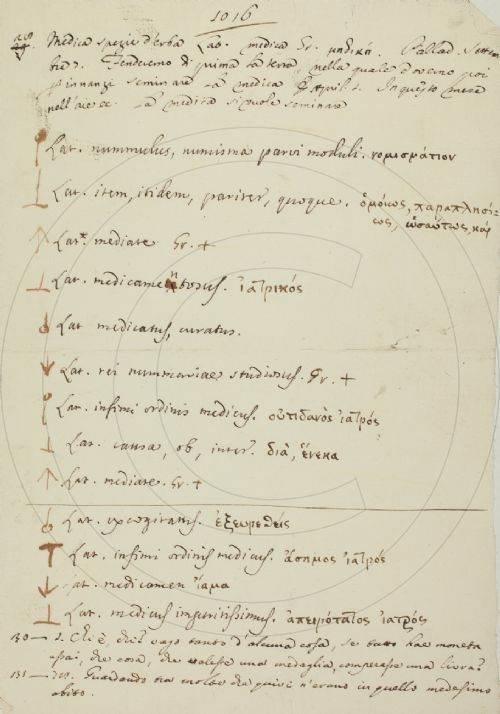 1016
Medica spezie d'erba Lat. medica Gr. μηδική. Pallad. Settem
bre 7. Fenderemo di prima la terra, nella quale dovemo poi
innanzi seminare la medica Aprile 1. In questo mese
nell'aie ec. la medica si vuole seminare
Lat. nummulus, numisma parvi moduli. νομισμάτιον
Lat. item, itidem, pariter, quoque. ὁμοίως, παραπλησί-
ως, ὡσαύτως, καί
Lat. mediate Gr. +
Lat. medicamentosus. ἰατρικός
Lat. medicatus, curatus.
Lat. rei nummariae studiosus. Gr. +
Lat. infimi ordinis medicus. οὐτιδανὸς ἰατρός
Lat. causa, ob, inter. διὰ, ἕνεκα
Lat. mediate. Gr. +
Lat. excogitatus. ἐξευρεθείς
Lat. infimi ordinis medicus. ἄσημος ἰατρός
Lat. medicamen ἴαμα
Lat. medicus imperitissimus. ἀπειρότατος ἰατρός
130 — 2. Chi è, vago tanto d'alcuna cosa, se tutto hae moneta
assai, che cosa, che volesse una medaglia, comperasse una livra?
131 — Guardando tra molte che quivi n'erano in quello medesimo
abito.